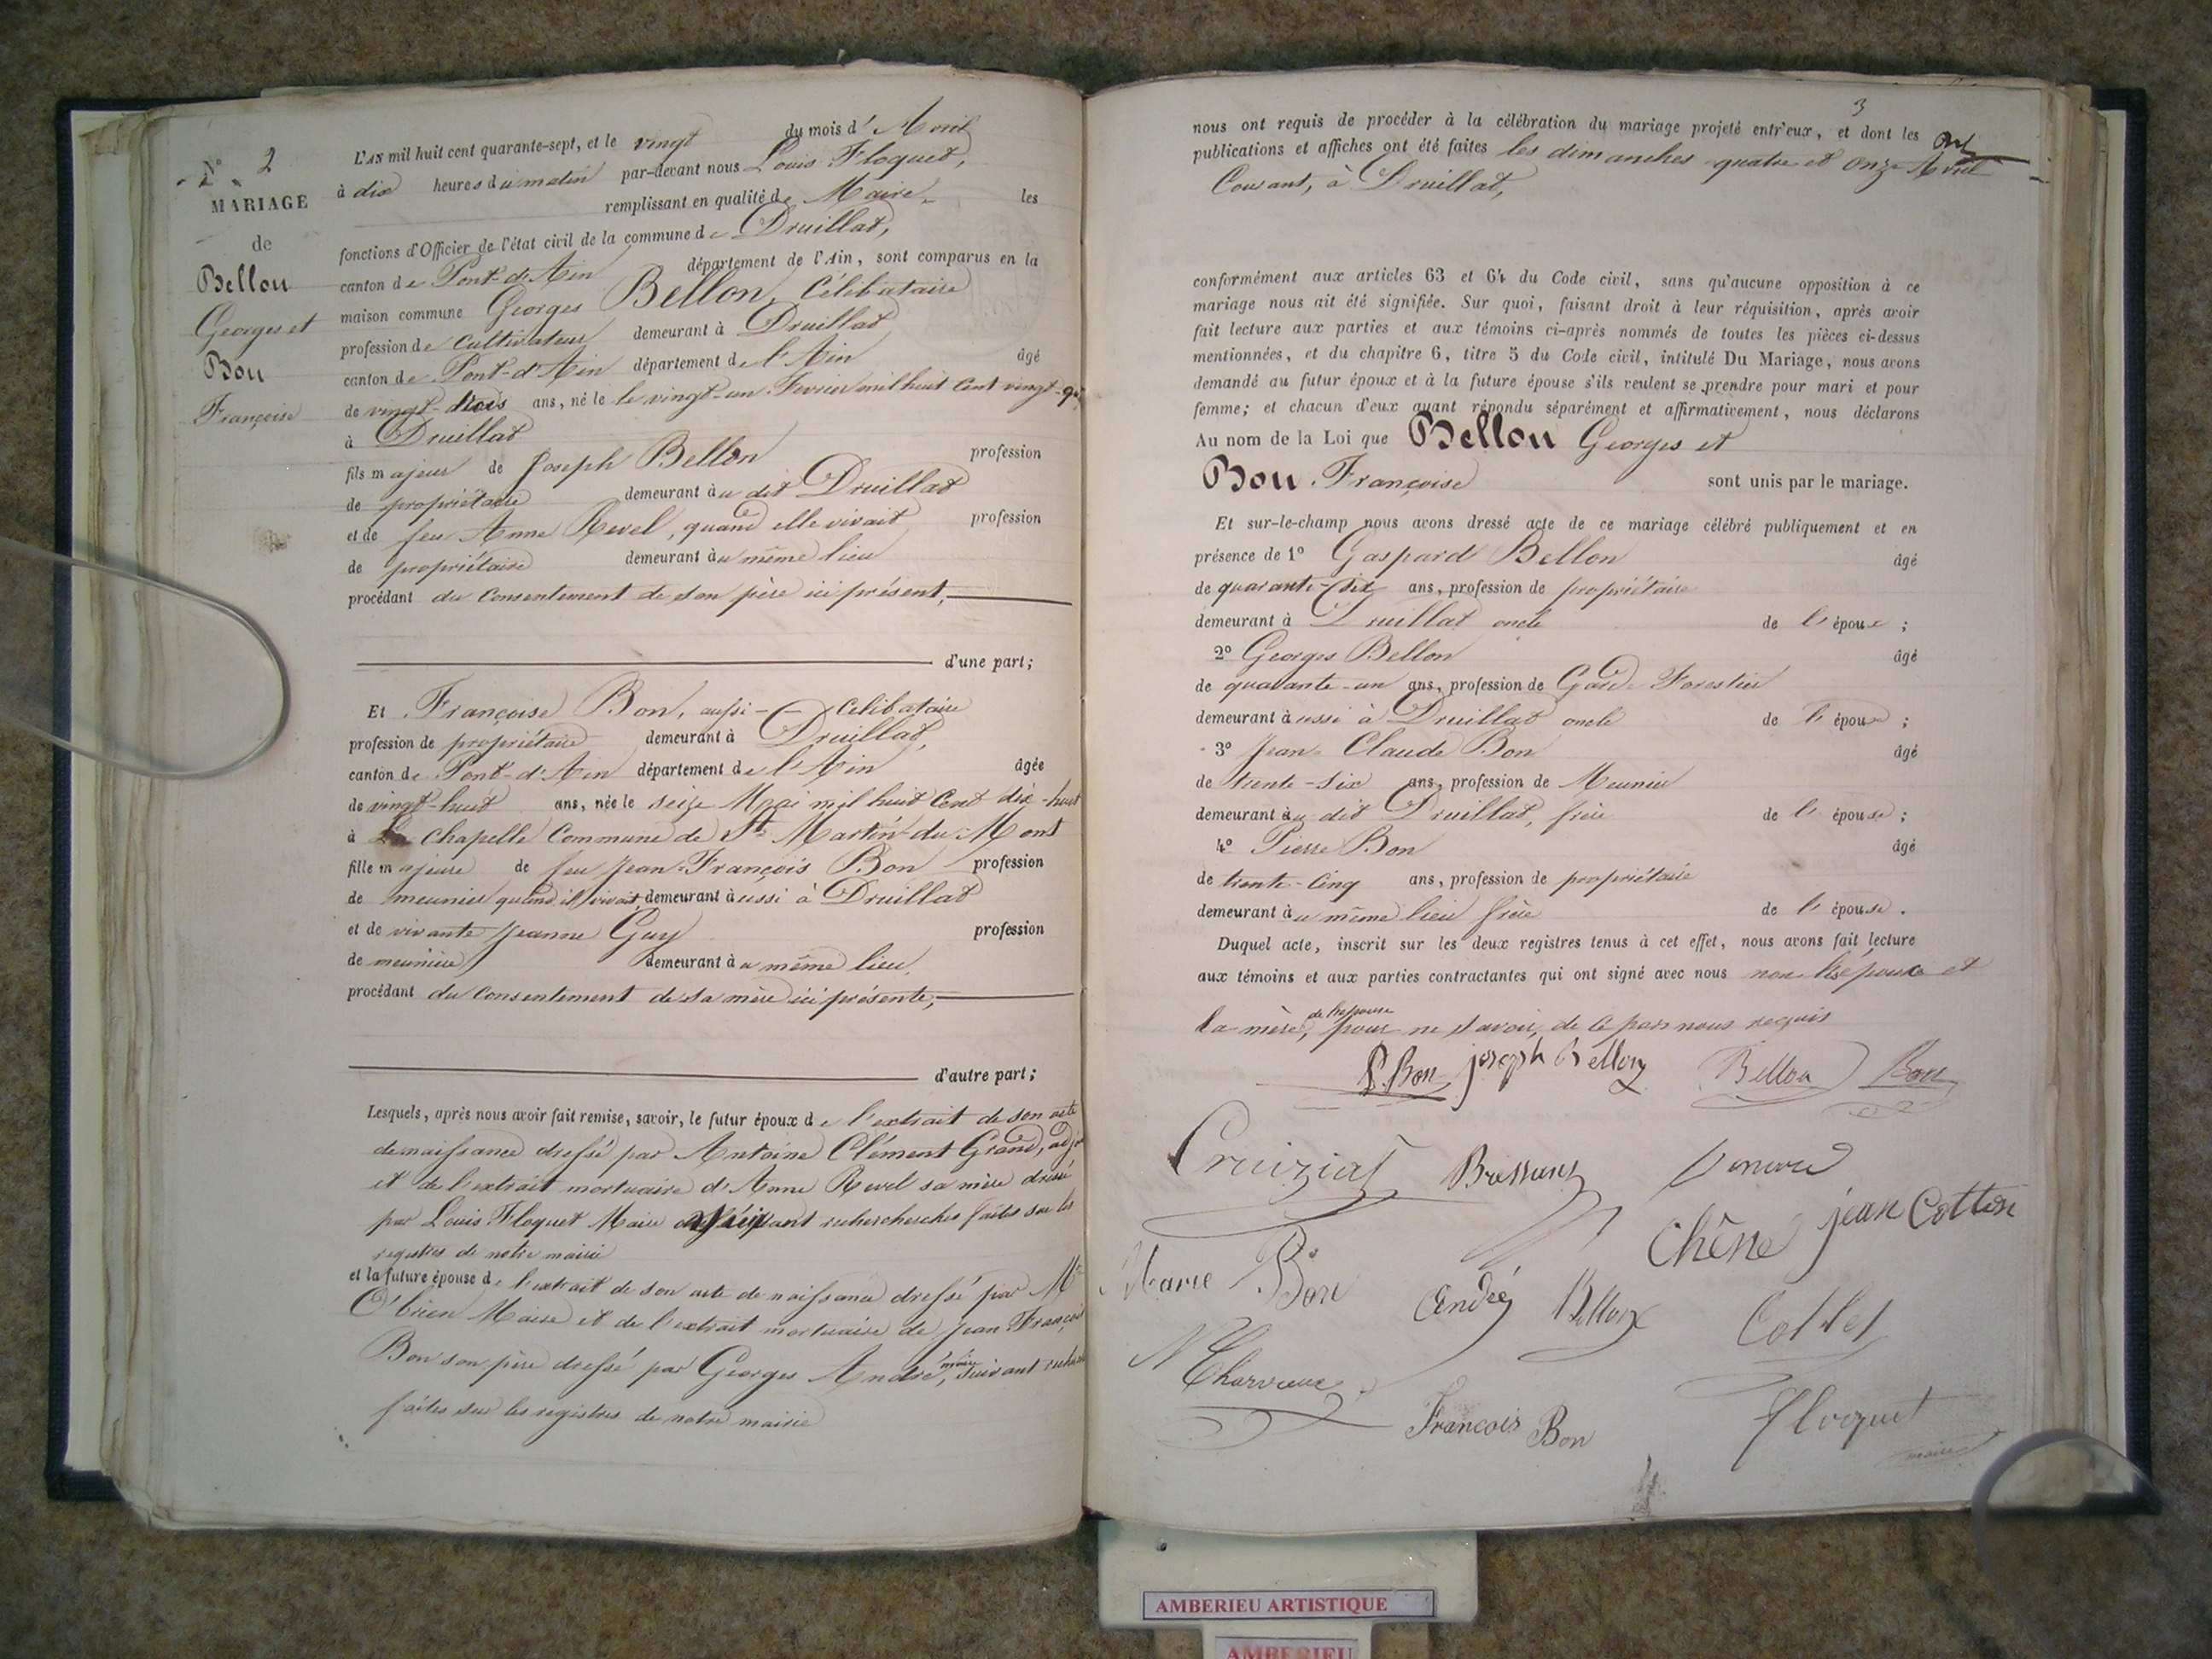 N° 2
MARIAGE
de
Bellon
Georges et
Bon
Françoise
L'AN mil huit cent quarante-sept, et le vingt du mois d'Avril
à dix heures du matin par-devant nous Louis Floquet,
remplissant en qualité de Maire les
fonctions d'Officier de l'état civil de la commune de Druillat,
canton de Pont-d'Ain département de l'Ain, sont comparus en la
maison commune Georges Bellon, Célibataire
profession de Cultivateur demeurant à Druillat
canton de Pont-d'Ain département de l'Ain âgé
de vingt-trois ans, né le le vingt-un Fevrier mil huit Cent vingt-q
à Druillat
fils majeur de Joseph Bellon profession
de propriétaire demeurant au dit Druillat
et de feu Anne Revel, quand elle vivait profession
de propriétaire demeurant au même lieu
procédant du Consentement de son père ici présent,
d'une part;
Et Françoise Bon, aussi Célibataire
profession de propriétaire demeurant à Druillat,
canton de Pont-d'Ain département de l'Ain âgée
de vingt-huit ans, née le seize Mai mil huit Cent dix-huit
à La Chapelle Commune de St Martin-du-Mont
fille majeure de feu Jean-François Bon profession
de meunier quand il vivait, demeurant aussi à Druillat
et de vivante Jeanne Guy profession
de meunière demeurant au même lieu,
procédant du Consentement de sa mère ici présente,
d'autre part;
Lesquels, après nous avoir fait remise, savoir, le futur époux de l'extrait de son acte
de naissance dressé par Antoine Clément Grand, adj
et de l'extrait mortuaire d'Anne Revel sa mère dressé
par Louis Floquet Maire suivant recherches faites sur les
registres de notre mairie
et la future épouse de l'extrait de son acte de naissance dressé par Mr
O'brien Maire et de l'extrait mortuaire de Jean François
Bon son père dressé par Georges André, maire, suivant
faites sur les registres de notre mairie
3
nous ont requis de procéder à la célébration du mariage projeté entr'eux, et dont les
publications et affiches ont été faites les dimanches quatre et onze Avril
Courant, à Druillat,
conformément aux articles 63 et 64 du Code civil, sans qu'aucune opposition à ce
mariage nous ait été signifiée. Sur quoi, faisant droit à leur réquisition, après avoir
fait lecture aux parties et aux témoins ci-après nommés de toutes les pièces ci-dessus
mentionnées, et du chapitre 6, titre 5 du Code civil, intitulé Du Mariage, nous avons
demandé au futur époux et à la future épouse s'ils veulent se prendre pour mari et pour
femme; et chacun d'eux ayant répondu séparément et affirmativement, nous déclarons
Au nom de la Loi que Bellon Georges et
Bon Françoise sont unis par le mariage.
Et sur-le-champ nous avons dressé acte de ce mariage célébré publiquement et en
présence de 1° Gaspard Bellon âgé
de quarante-six ans, profession de propriétaire
demeurant à Druillat oncle de l'époux;
2° Georges Bellon âgé
de quarante-un ans, profession de Garde Forestier
demeurant aussi à Druillat oncle de l'époux;
3° Jean-Claude Bon âgé
de trente-six ans, profession de Meunier
demeurant au dit Druillat, frère de l'épouse;
4° Pierre Bon âgé
de trente-cinq ans, profession de propriétaire
demeurant au même lieu frère de l'épouse.
Duquel acte, inscrit sur les deux registres tenus à cet effet, nous avons fait lecture
aux témoins et aux parties contractantes qui ont signé avec nous non l'épouse et
la mère, de l'épouse pour ne savoir, de ce par nous requis
P. Bon joseph Bellon Bellon Bon
Cruiziat
Chêne jean Cotton
Marie Bon andré Bellon Collet
francois Bon floquet
maire
AMBERIEU ARTISTIQUE
AMBERIEU